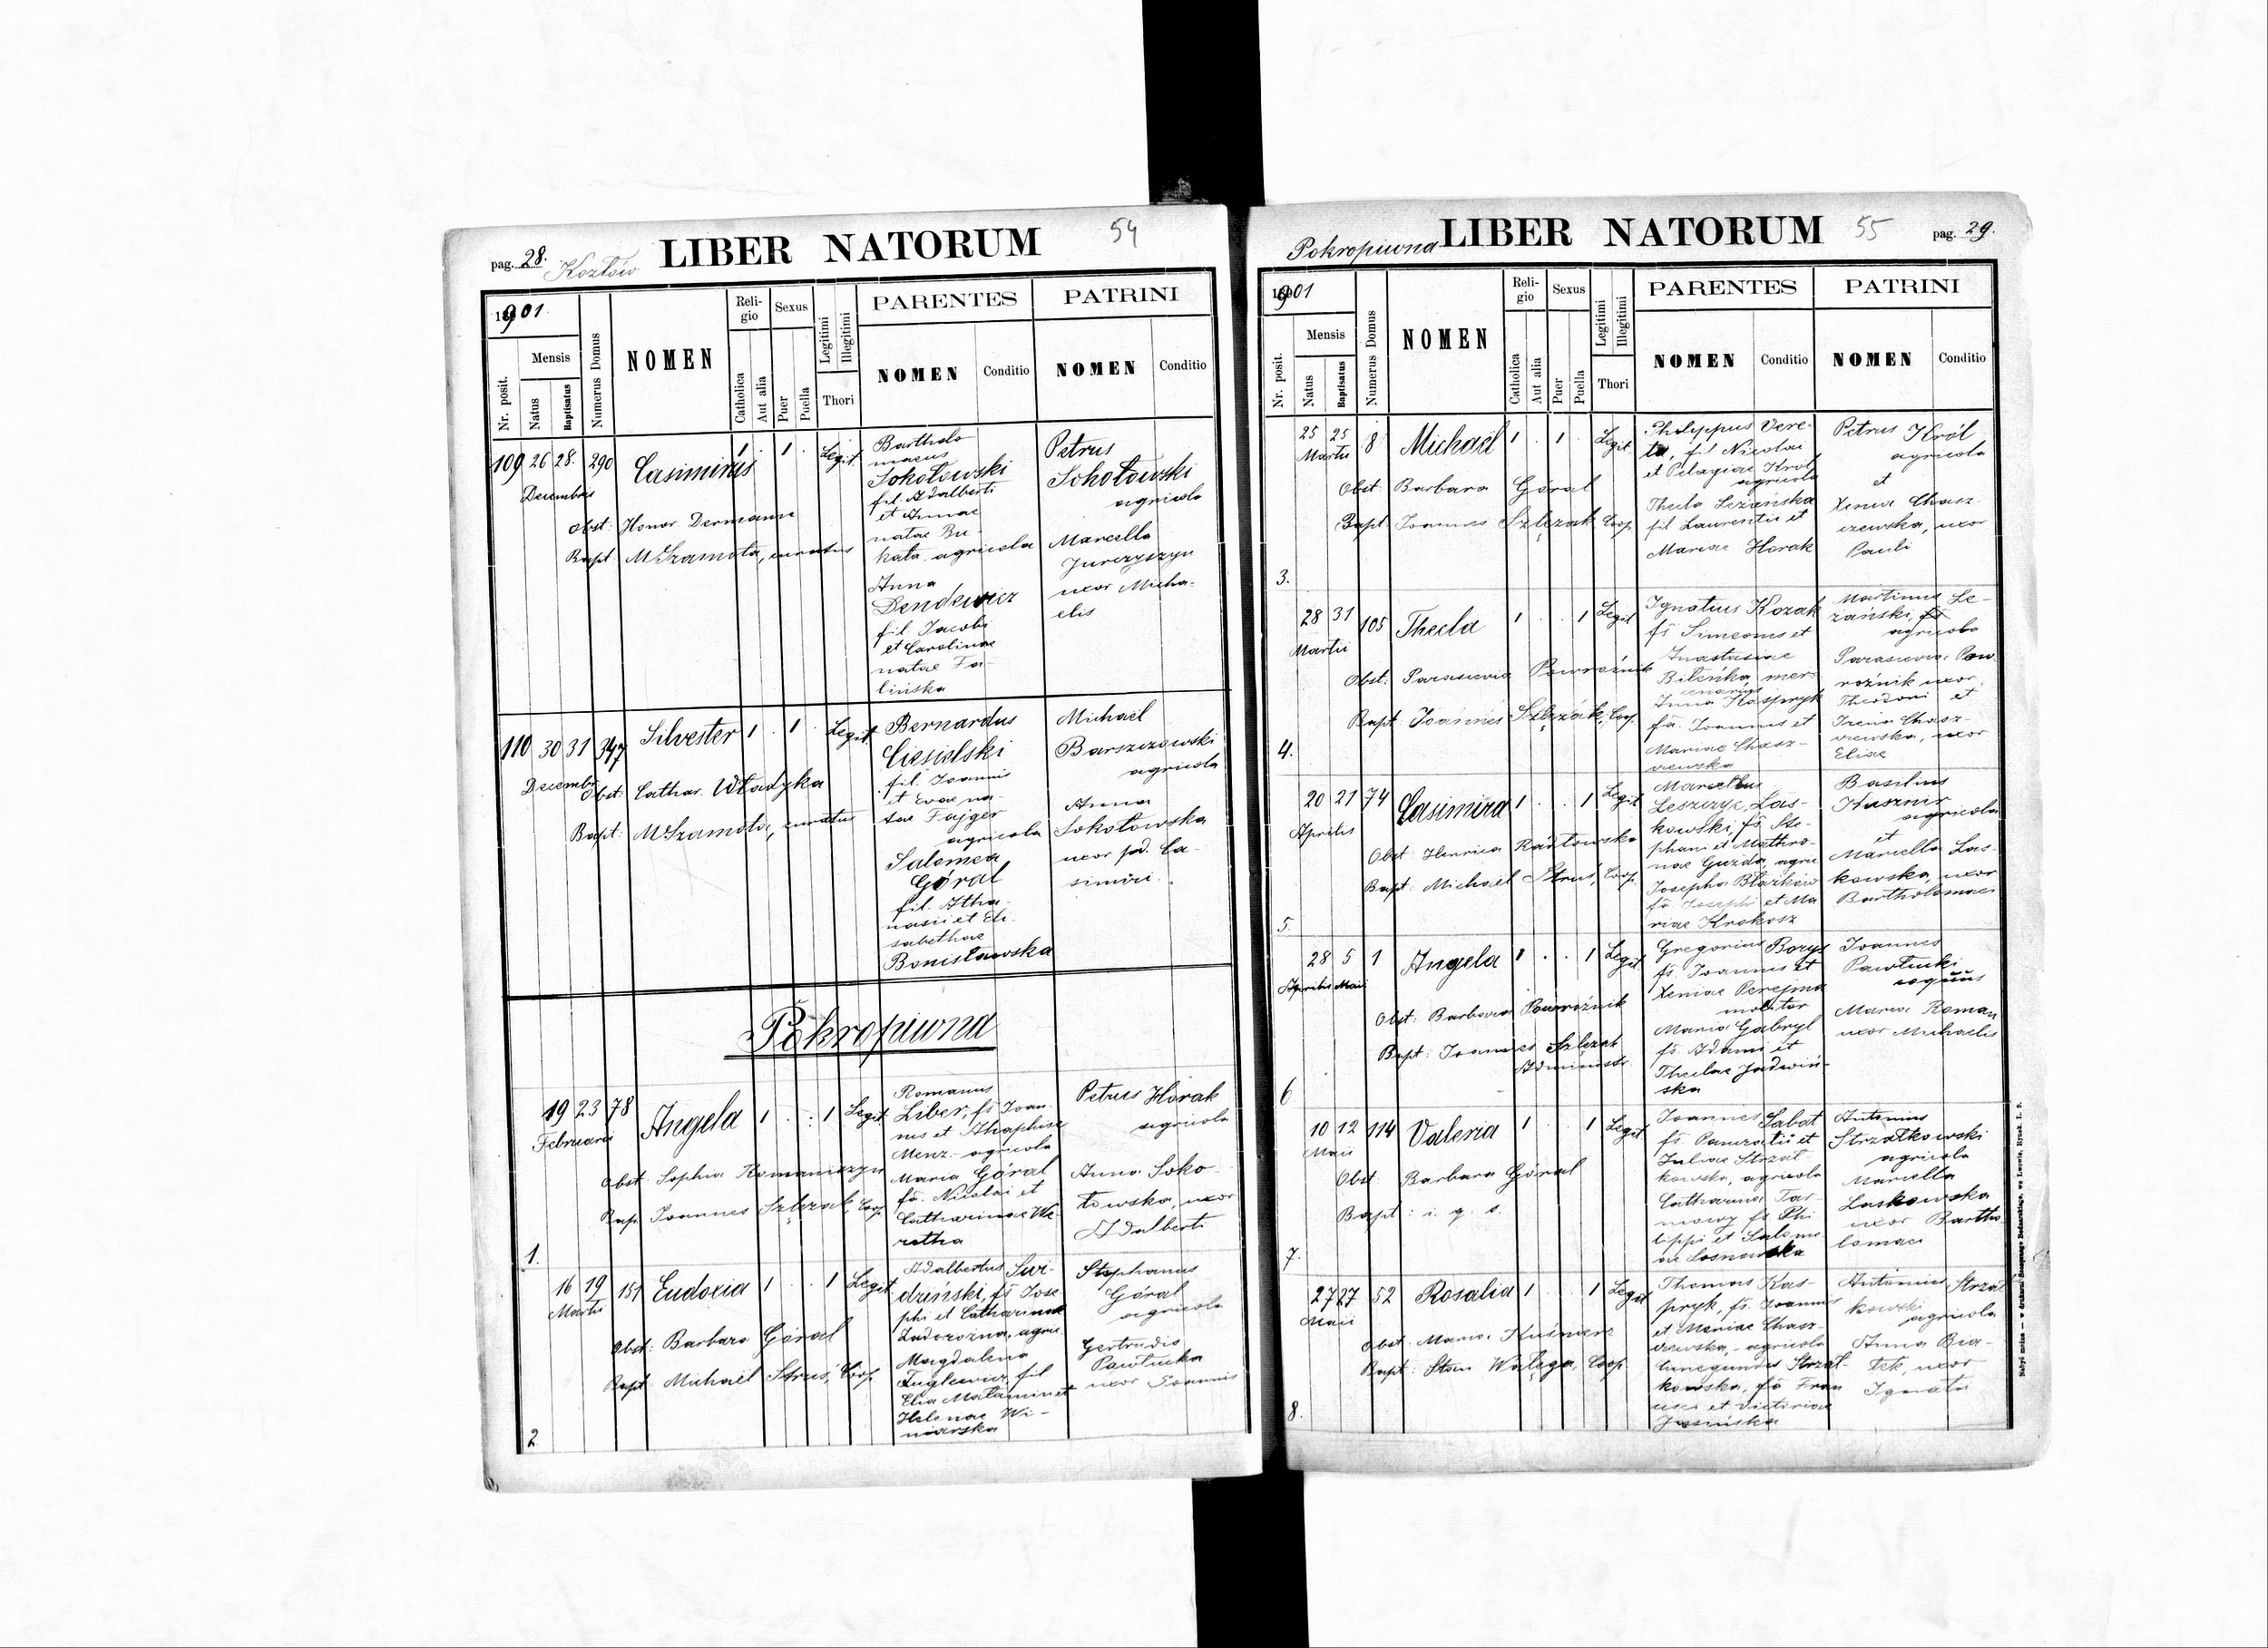 pag. 28. Kozłów LIBER NATORUM 54
1901.
Nr. posit.
Mensis
Natus
Baptisatus
Numerus Domus
NOMEN
Religio
Catholica
Aut alia
Sexus
Puer
Puella
Legitimi
Illegitimi
Thori
PARENTES
NOMEN
Conditio
PATRINI
NOMEN
Conditio
109 26 28. 290 Casimirus 1 . 1 . Legit.
Decembris
Obst: Honor. Dermann
Bapt: M Szamota, curatus
Bartholo
maeus
Sokołowski
fil. Adalberti
et Annae
natae Bu-
kata agricola
Anna
Dendewicz
fil. Jacobi
et Carolinae
natae Fa-
lińska
Petrus
Sokołowski
agricola
Marcella
Jurczyszyn
uxor Micha-
elis
110 30 31 347 Silvester 1 . 1 . Legit.
Decembr.
Obst: Cathar. Władyka
Bapt: M Szamota, curatus
Bernardus
Ciesielski
fil. Joannis
et Evae na-
tae Fajger
agricola
Salomea
Góral
fil. Atha-
nasii et Eli-
sabethae
Bonisławska
Michaël
Barszczowski
agricola
Anna
Sokołowska
uxor Ca-
simiri.
Pokropiwna
19 23 78 Angela 1 . . 1 Legit
Februarii
Obst: Sophia Romaniszyn
Bap. Joannes Szlęzak, Coop.
1.
Romanus
Liber, fs Joan-
nis et Ahaphiae
Menz - agricola
Maria Góral
fa. Nicolai et
Catharinae We-
retha
Petrus Horak
agricola
Anna Soko-
łowska, uxor
Adalberti
16 19 151 Eudoxia 1 . . 1 Legit
Martii
Obst: Barbara Góral
Bapt: Michaël Struś, Coop.
2
Adalbertus Swi-
dziński, fs Jose
phi et Catharinae
Zadorożna, agric.
Magdalena
Fuglewicz, fil
Elia et
Helenae Wi-
niarska
Stephanus
Góral
agricola
Gertrudis
Pawlucka
uxor Joannis
Pokropiwna LIBER NATORUM 55 pag. 29.
1901
Nr. posit.
Mensis
Natus
Baptisatus
Numerus Domus
NOMEN
Religio
Catholica
Aut alia
Sexus
Puer
Puella
Legitimi
Illegitimi
Thori
PARENTES
NOMEN
Conditio
PATRINI
NOMEN
Conditio
25 25 8 Michaël 1 . 1 . Legit.
Martii
Obst: Barbara Góral
Bapt: Joannes Szlęzak Coop.
3.
Philippus Vere-
ta, fil Nicolai
et Pelagiae Król
agricola
Thecla Leżańska
fil Laurentii et
Mariae Horak
Petrus Król
agricola
et
Xenia Chasz-
czewska, uxor
Pauli
28 31 105 Thecla 1 . . 1 Legit
Martii
Obst: Parascevia Powroźnik
Bapt: Joannes Szlęzak, Coop.
4.
Ignatius Kozak
fs Simeonis et
Anastasiae
Bileńka, mer-
cenarius
Anna Kaspryk
fa. Joannis et
Mariae Chasz-
czewska
Martinus Le-
żański,
agricola
Parascevia Pow-
roźnik uxor
Theodori et
Irena Chasz-
czewska, uxor
Eliae
20 21 74 Casimira 1 . . 1 Legit
Aprilis
Obst: Henrica Radłowska
Bapt: Michaël Struś, Coop.
5.
Marcellus
Leszczyc Las-
kowski, fs Ste-
phani et Mathro-
nae Guzda, agric
Josepha Blażków
fa Josephi et Ma
riae Krokosz
Basilius
Kusznir
agricola
et
Marcella Las-
kowska, uxor
Bartholomaei
28 5 1 Angela 1 . . 1 Legit
Aprilis Maii
Obst: Barbara Powroźnik
Bapt: Joannes Szlęzak
Administr.
6
Gregorius Borys
fs. Joannis et
Xeniae Perejma
molitor
Maria Gabryl
fs. Adami et
Theclae Jadwiń-
ska
Joannes
Pawlucki
Maria Roman
uxor Michaelis
10 12 114 Valeria 1 . . 1 Legit
Maii
Obst Barbara Góral
Bapt: i. q. s.
7.
Joannes Sabat
fs Pancratii et
Juliae Strzał-
kowska, agricola
Catharina Tar-
nowy fs Phi
lippi et Salome
ae Losnowska
Antonius
Strzałkowski
agricola
Marcella
Laskowska
uxor Bartho-
lomaei
27 27 52 Rosalia 1 . . 1 Legit
Maii
Obst: Maria Kuśnierz
Bapt: Stan Wałęga, Coop.
8.
Thomas Kas-
pryk, fs. Joannis
et Mariae Chasz-
czewska, - agricola
Cunegunda Strzał-
kowska, fa Fran
cisci et Victoriae
Jasińska
Antonius Strzał
kowski
agricola
Anna Bia-
łek, uxor
Ignatii